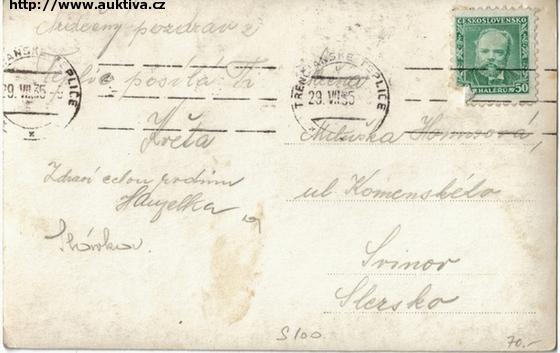 http://www.auktiva.cz
Srdečný pozdrav z
posílá Ti
Květa
Zdraví celou rodinu
Hanzelka
TRENČIANSKE TEPLICE
29. VII. 35
TRENČIANSKE TEPLICE
29. VII. 35
ČESKOSLOVENSKO
50 HALÉŘŮ 50
Miluška
ul Komenského
Svinov
Slezsko
S100
70.-